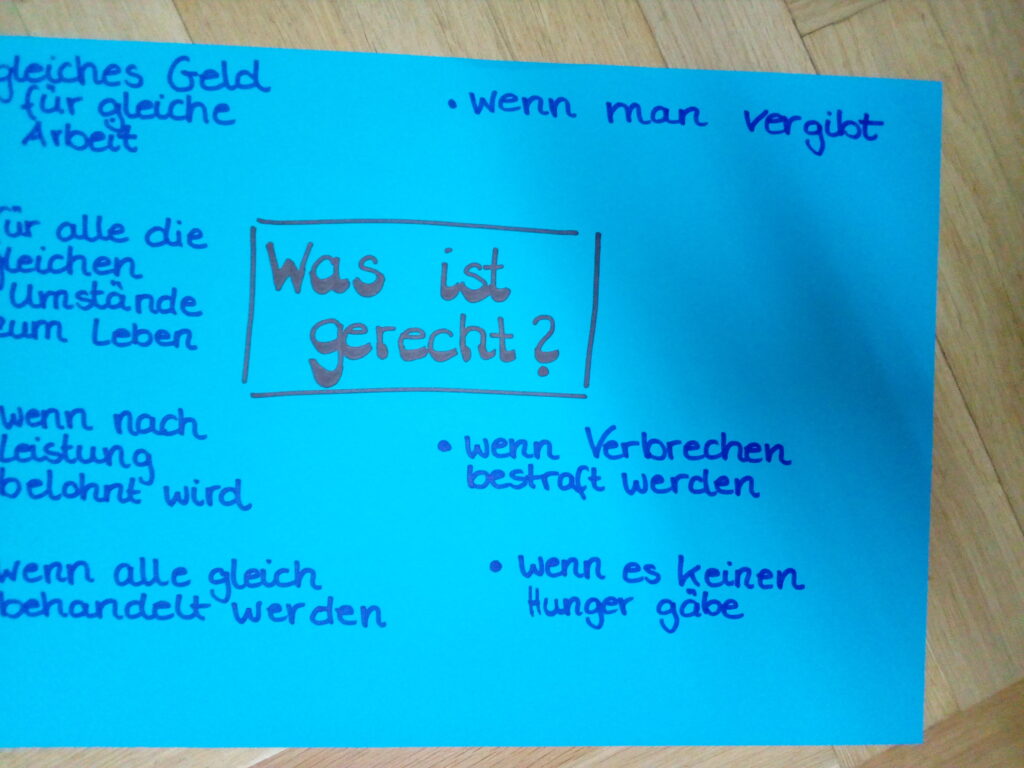 gleiches Geld
für gleiche
Arbeit
• wenn man vergibt
für alle die
gleichen
Umstände
zum Leben
Was ist
gerecht?
wenn nach
Leistung
belohnt wird
• wenn Verbrechen
bestraft werden
wenn alle gleich
behandelt werden
• wenn es keinen
Hunger gäbe